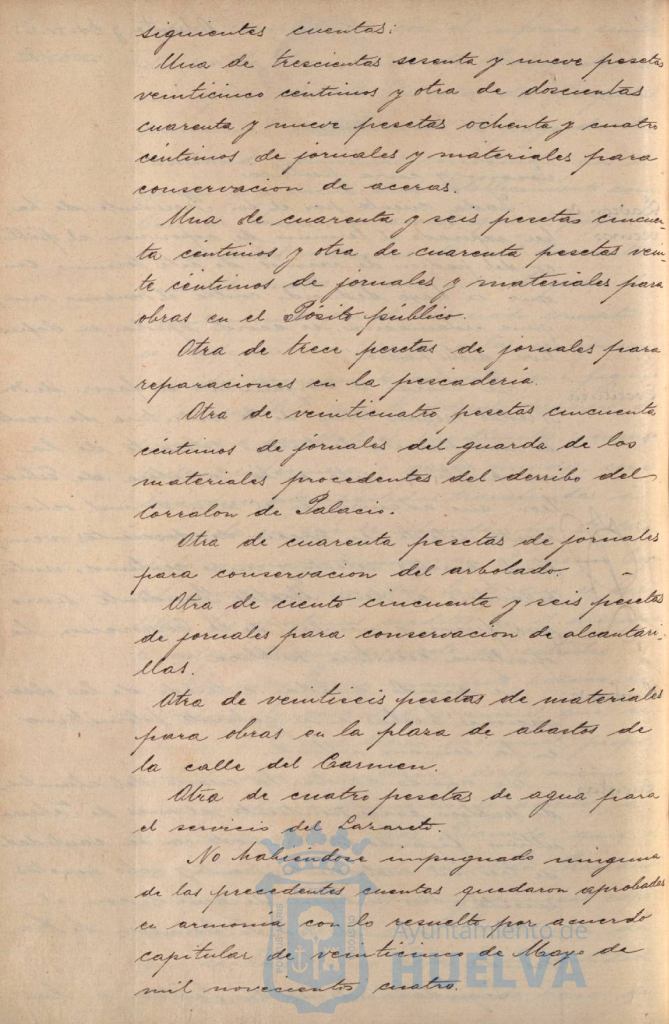 siguientes cuentas:
Una de trescientas sesenta y nueve pesetas
veinticinco céntimos y otra de doscientas
cuarenta y nueve pesetas ochenta y cuatro
céntimos de jornales y materiales para
conservacion de aceras.
Una de cuarenta y seis pesetas cincuen-
ta céntimos y otra de cuarenta pesetas vein-
te céntimos de jornales y materiales para
obras en el Pósito público.
Otra de trece pesetas de jornales para
reparaciones en la pescadería.
Otra de veinticuatro pesetas cincuenta
céntimos de jornales del guarda de los
materiales procedentes del derribo del
Corralon de Palacio.
Otra de cuarenta pesetas de jornales
para conservacion del arbolado.
Otra de ciento cincuenta y seis pesetas
de jornales para conservacion de alcantari-
llas.
Otra de veintiseis pesetas de materiales
para obras en la plaza de abastos de
la calle del Carmen.
Otra de cuatro pesetas de agua para
el servicio del Lazareto.
No habiendose impugnado ninguna
de las precedentes cuentas quedaron aprobadas
en armonía con lo resuelto por acuerdo
capitular de veinticinco de Mayo de
mil novecientos cuatro.
Ayuntamiento de
HUELVA